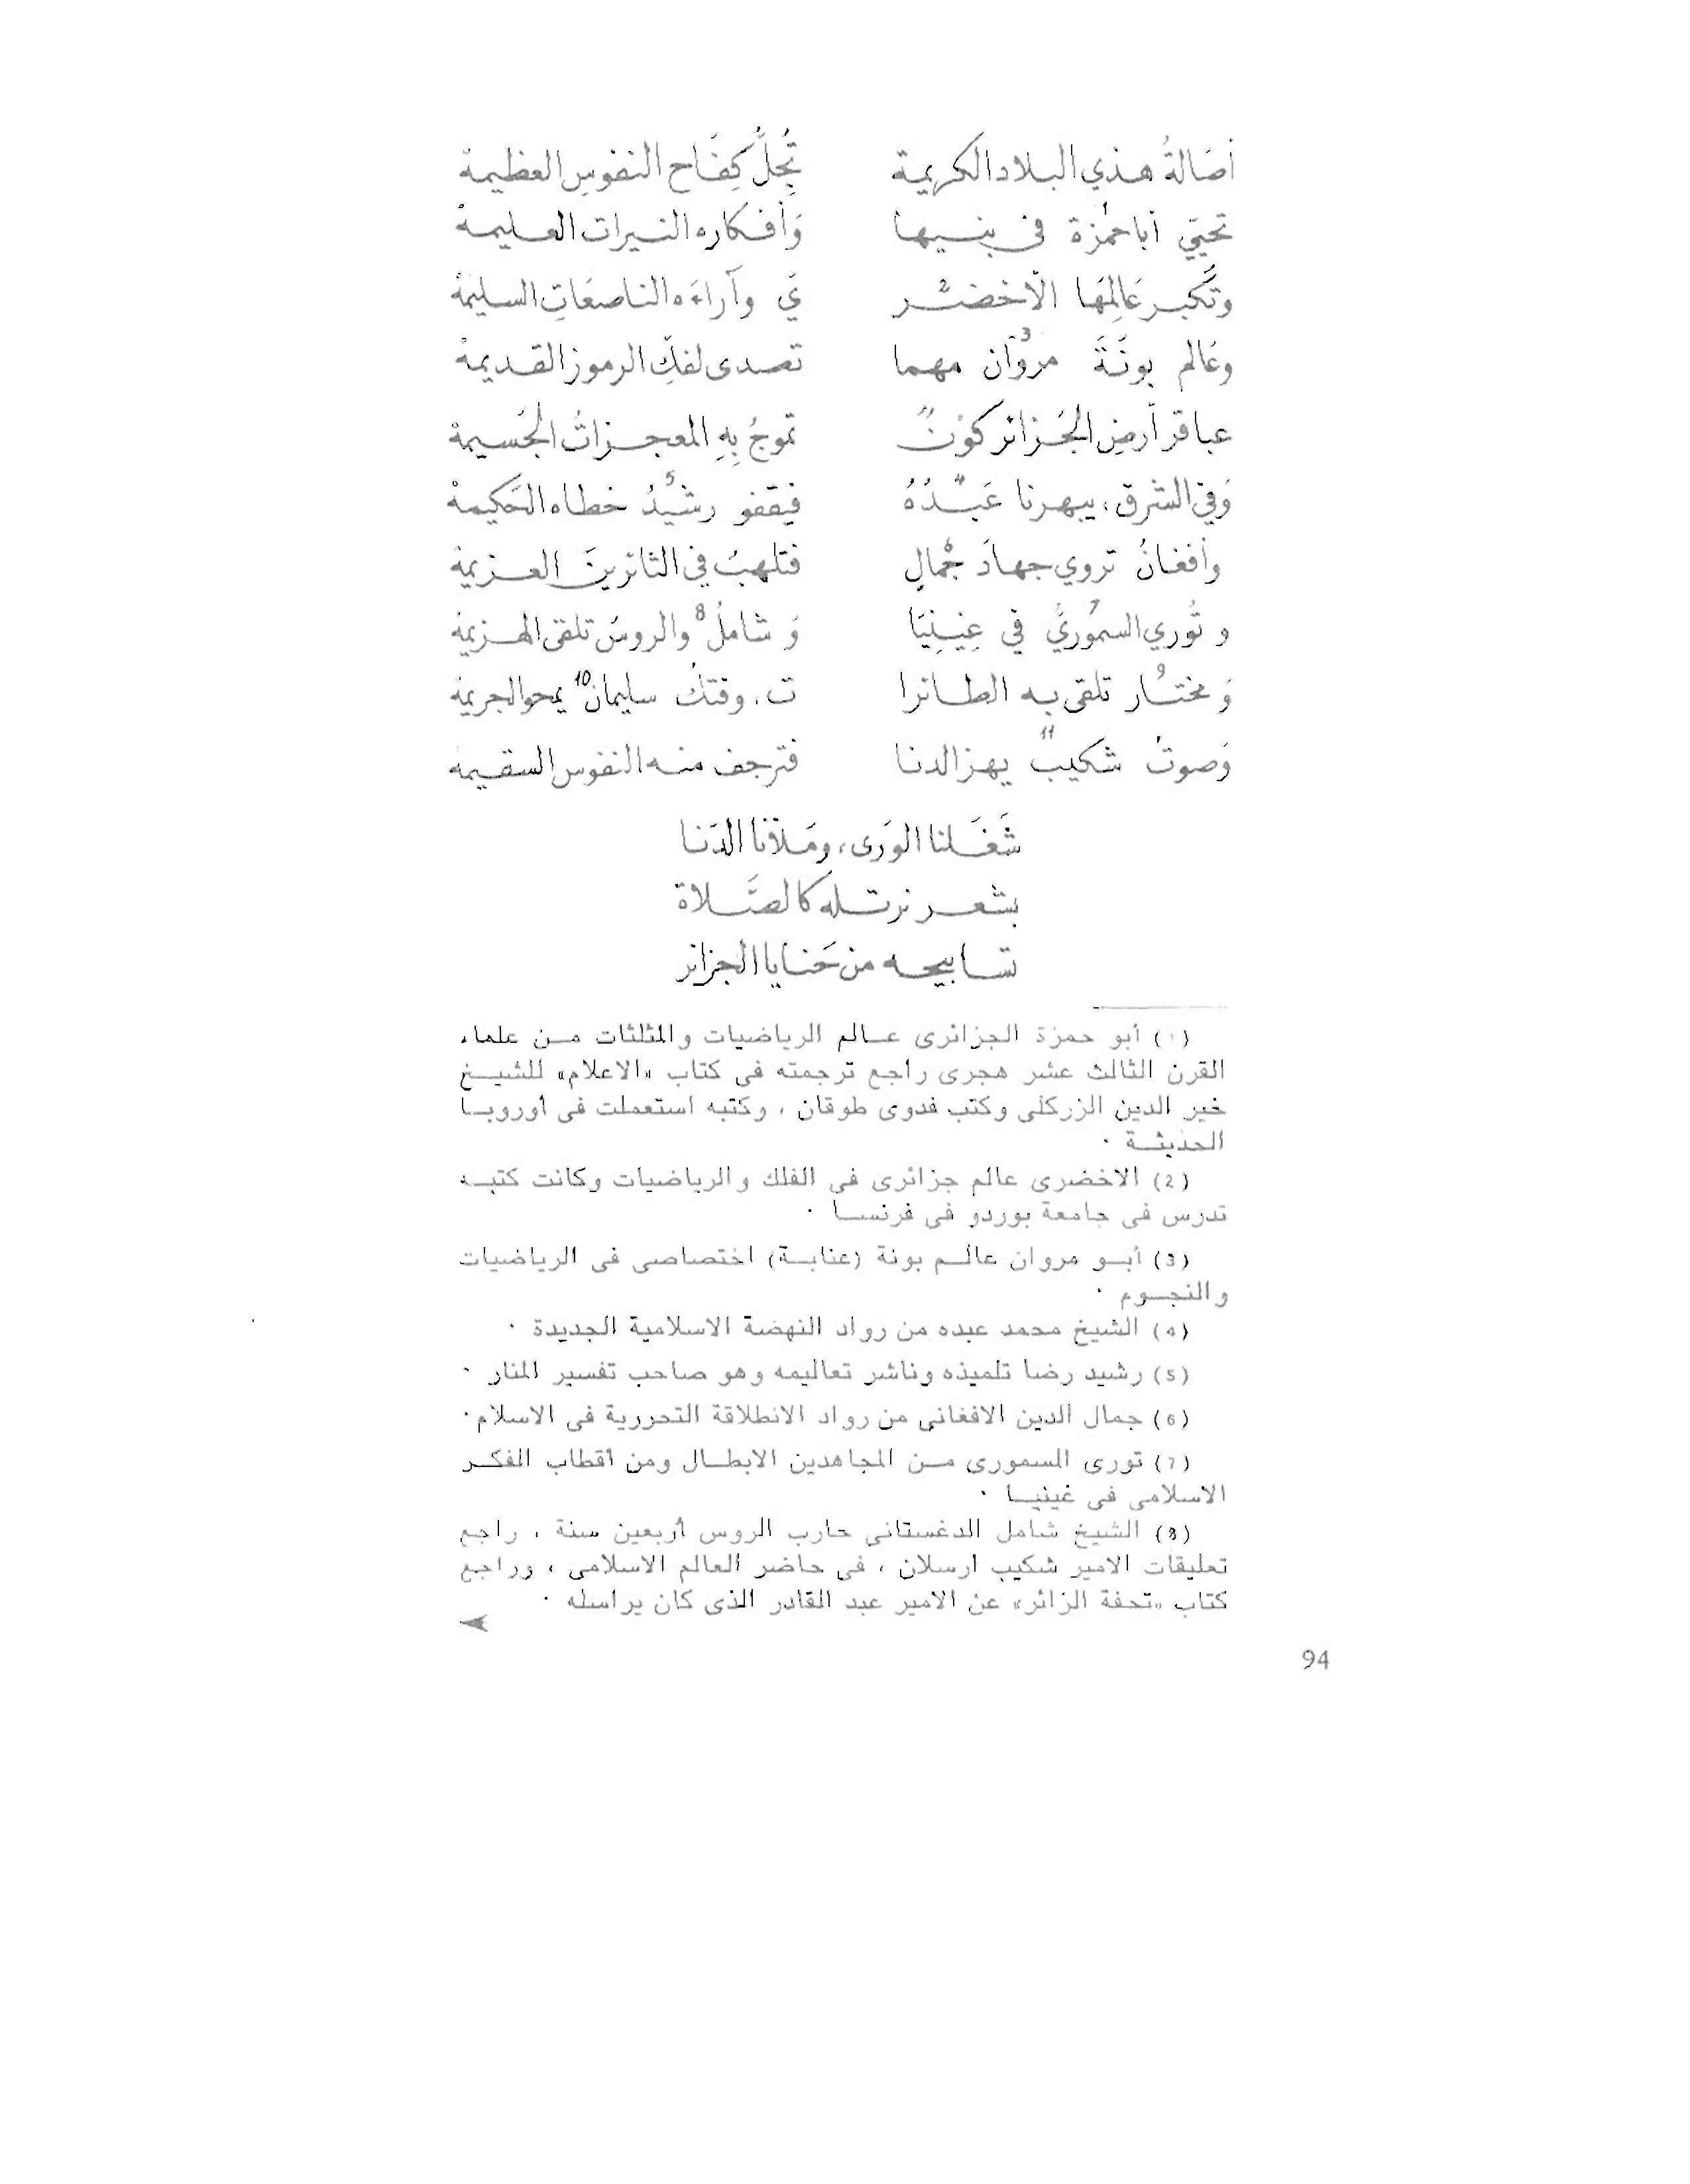 أصَالةُ هذي البلاد الكريمة تُجِلُّ كِفَاح النفوسِ العظيمهْ
تحيّي أبا حمْزة¹ في بنيها وَأفكاره النيرات العليمهْ
وتُكبر عَالِمَهَا الأخضَر² يَ وآراءَه الناصعَاتِ السليمهْ
وعَالم بونَةَ مروان³ مهما تصدى لفكِّ الرموز القديمهْ
عباقر أرضِ الجَزائر كوْنٌ تموجُ بِهِ المعجزاتُ الجَسيمهْ
وَفي الشرق، يبهرنا عَبْدُهُ⁴ فيَقفو رشيدُ⁵ خطاه الحَكيمهْ
وأفغانُ تروي جهادَ جمْالٍ⁶ فتلهبُ في الثائرينَ العزيمهْ
وتُوري السمُوريُّ⁷ في غِينِيَا وَشاملُ⁸ والروسُ تلقى الهزيمهْ
وَمختْار⁹ تلقى به الطائرا ت، وفتكُ سليمان¹⁰ يمحو الجريمهْ
وَصوتُ شكيبٍ¹¹ يهز الدنا فترجف منه النفوس السقيمهْ
شَغَلنا الوَرى، ومَلأنا الدّنا
بشعر نرتله كالصَّلاة
تسابيحه من حَنايا الجزائر
(1) أبو حمزة الجزائرى عالم الرياضيات والمثلثات من علماء
القرن الثالث عشر هجرى راجع ترجمته فى كتاب «الاعلام» للشيخ
خير الدين الزركلى وكتب فدوى طوقان ، وكتبه استعملت فى أوروبا
الحديثة .
(2) الاخضرى عالم جزائرى فى الفلك والرياضيات وكانت كتبه
تدرس فى جامعة بوردو فى فرنسا .
(3) أبو مروان عالم بونة (عنابة) اختصاصى فى الرياضيات
والنجوم .
(4) الشيخ محمد عبده من رواد النهضة الاسلامية الجديدة .
(5) رشيد رضا تلميذه وناشر تعاليمه وهو صاحب تفسير المنار .
(6) جمال الدين الافغانى من رواد الانطلاقة التحررية فى الاسلام .
(7) تورى السمورى من المجاهدين الابطال ومن أقطاب الفكر
الاسلامى فى غينيا .
(8) الشيخ شامل الدغستانى حارب الروس أربعين سنة ، راجع
تعليقات الامير شكيب ارسلان ، فى حاضر العالم الاسلامى ، وراجع
كتاب «تحفة الزائر» عن الامير عبد القادر الذى كان يراسله .
94